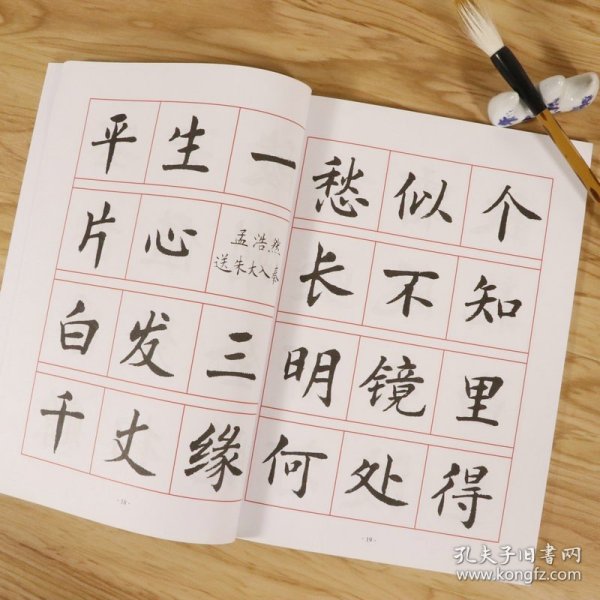 平生一
片心
孟浩然
送朱大入秦
白发三
千丈缘
- 18 -
愁似个
长不知
明镜里
何处得
- 19 -
孔夫子旧书网
www.kongfz.com